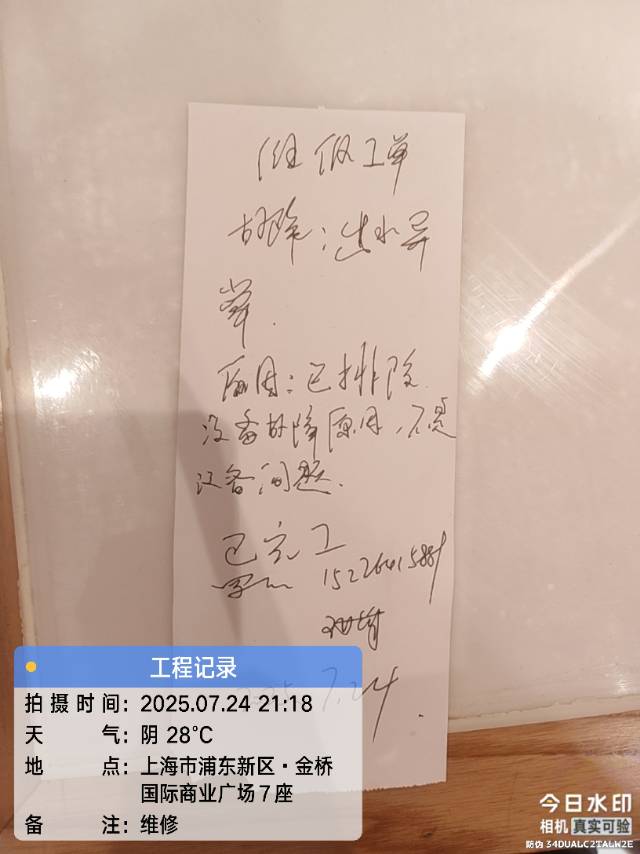 维保工单
故障：出水异
常.
原因：已排除
设备故障原因，不是
设备问题.
已完工
7.24
工程记录
拍摄时间：2025.07.24 21:18
天气：阴 28℃
地点：上海市浦东新区·金桥
国际商业广场7座
备注：维修
今日水印
相机 真实可验
防伪 34DUALC2TALW2E